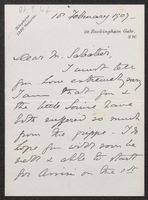 1st February 1907.
Buckingham Gate,
S.W.
Dear M. Sabatier
I must tell
you how extremely sorry
I am that you & 
the little Louise have
both suffered so much
from the grippe. I
hope you will soon be
well & able to start
for Assisi on the 1st